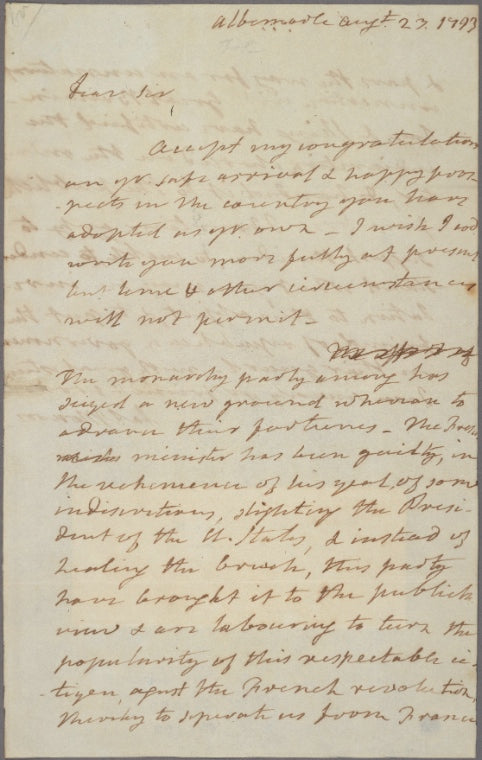 Albemarle augt. 27. 1793
Dear Sir,
Accept my congratulations
on yr. safe arrival & happy pros
pects in the country you have
adopted as yr. own – I wish I cod
write you more fully at present
but time & other circumstances
will not permit –
The effort of
The monarchy party among has
seized a new ground whereon to
advance their fortunes – The French
minister has been guilty, in
the vehemence of his zeal, of some
indiscretions, slighting the Presi-
dent of the U. States, & instead of
healing the breach, this party
have brought it to the publick
view & are labouring to turn the
popularity of this respectable ci-
-tizen, agst the French revolution,
thereby to seperate us from France